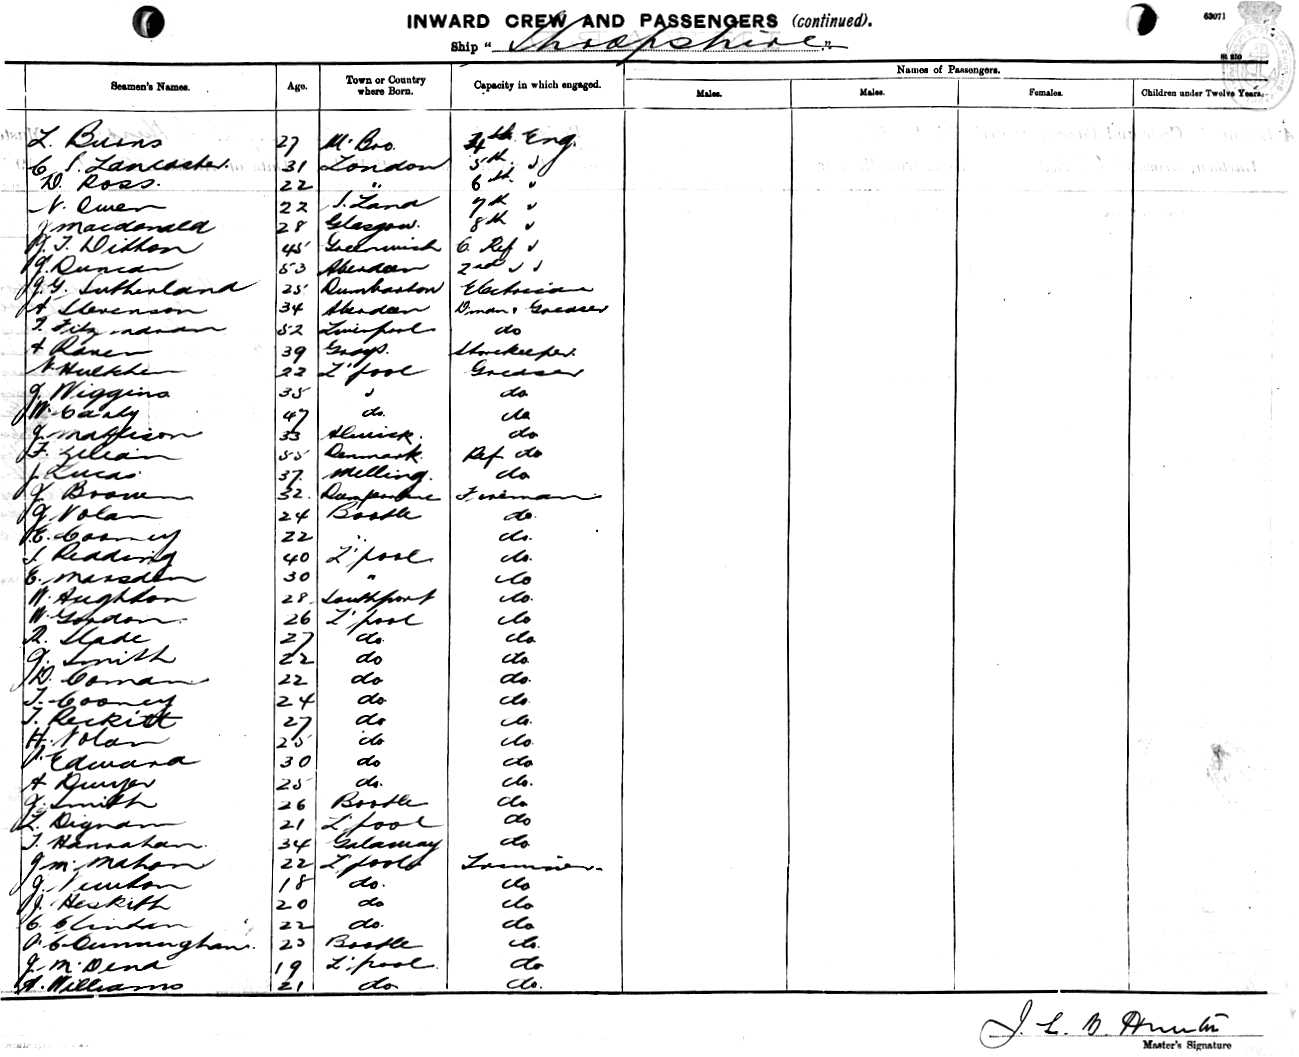 63071
INWARD CREW AND PASSENGERS (continued).
Ship "Shropshire"
Seamen's Names. Age. Town or Country where Born. Capacity in which engaged. Names of Passengers.
Males. Males. Females. Children under Twelve Years.
L. Burns 27 M'Bro. 4th Eng.
C. S. Lancaster. 31 London 5th "
D. Ross. 22 " 6th "
N. Owen 22 S. Land 7th "
J Macdonald 28 Glasgow. 8th "
T. Ditton 45 Greenwich C. Ref "
J. Duncan 53 Aberdeen 2nd " "
J. G. Sutherland 25 Dumbarton Electrician
A Stevenson 34 Aberdeen D'man & Greaser
T. 52 Liverpool do
A Raven 39 Grays. Storekeeper.
N 22 L'pool Greaser
J. Wiggins 35 " do
W. 47 do. do
J. Mattison 33 Alnwick. do
F. 55 Denmark. Ref do
J. Lucas 37 Melling. do
J. Brown 32. Fireman
J. Nolan 24 Bootle do.
E. Cooney 22 " do.
J. Redding 40 L'pool do.
E. Marsden 30 " do
W. Aughton 28. Southport do.
W. Gordon. 26 L'pool do
R. Slade 27 do. do.
J. Smith 22 do do.
D. Coman 22 do do.
T. Cooney 24 do do.
T. Reckitt 27 do do.
H. Nolan 25 do do.
Edward 30 do do
A Dwyer 25 do. do.
J. Smith 26 Bootle do
L. Dignam 21 L'pool do
T. Hanrahan. 34 Galaway do
J. McMahon 22 L'pool Trimmer.
J. Newton 18 do. do
J. Hesketh 20 do do
C. Clinton 22 do. do
C. Cunningham. 23 Bootle do.
J. McDend 19 L'pool. do
A. Williams 21 do do.
Master's Signature